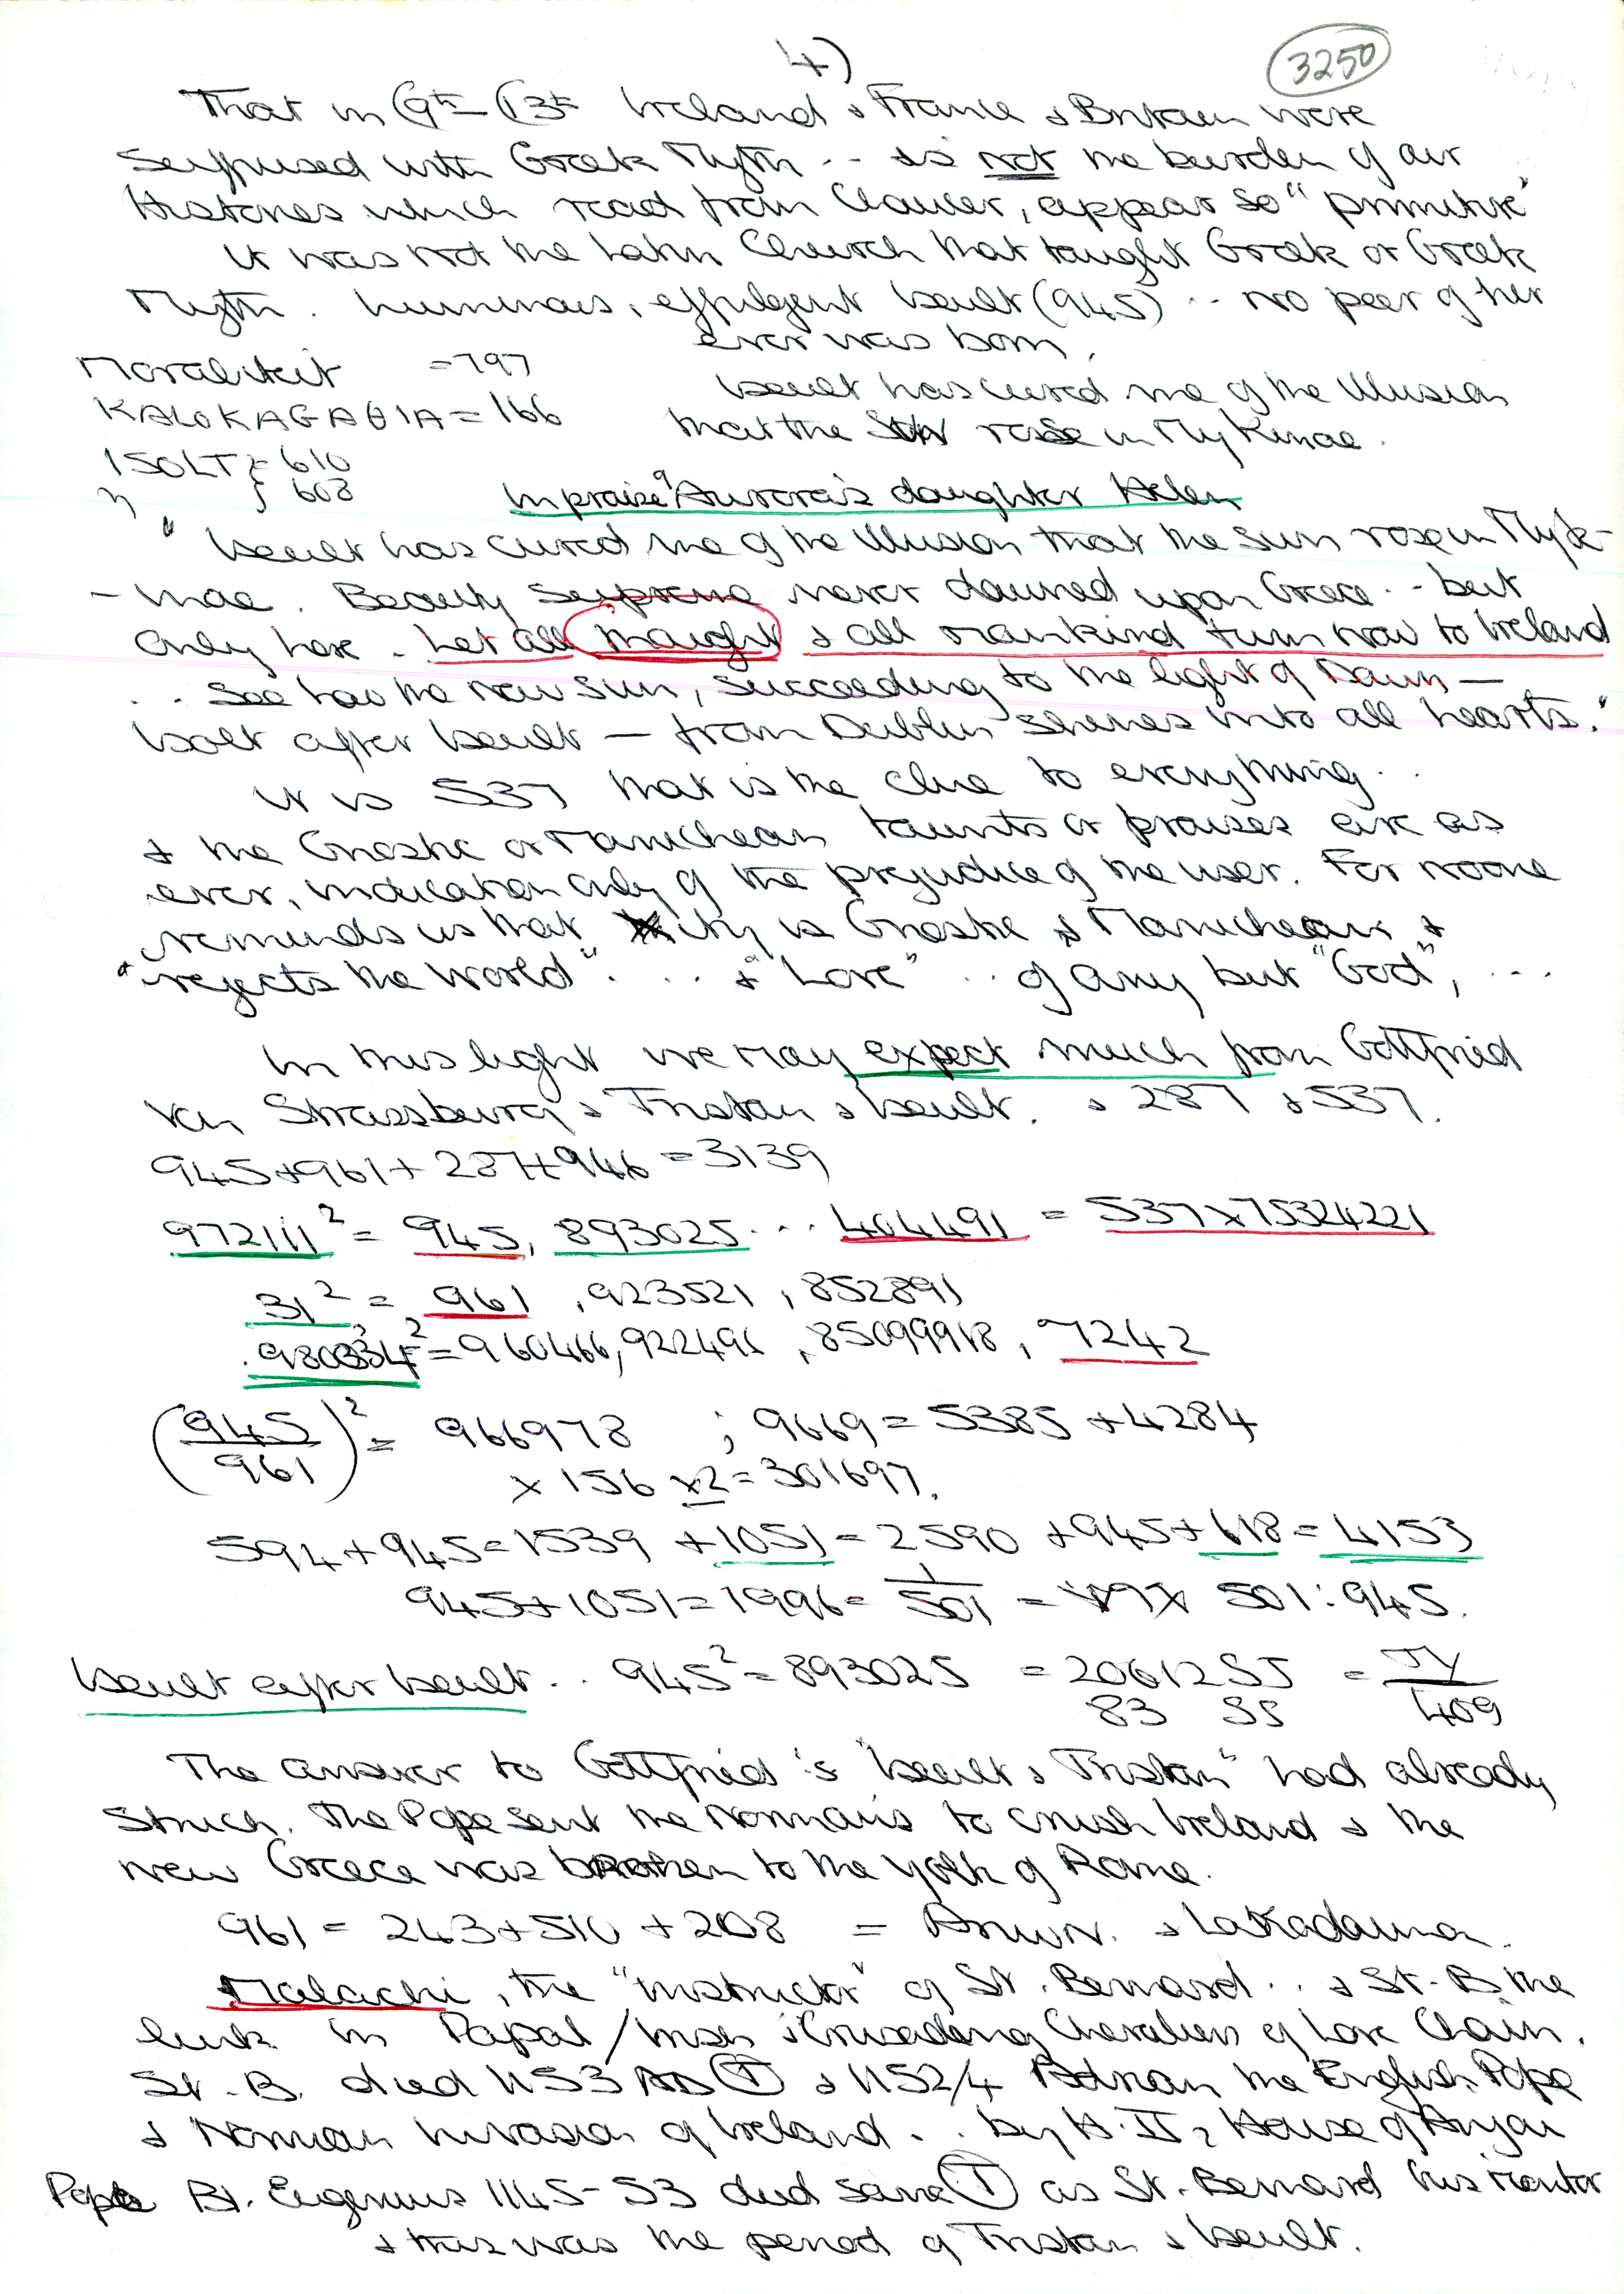 4)
3250
That in C9th – C13th Ireland & France & Britain were
suffused with Greek Myth .. is not the burden of our
Histories which read from Chaucer, appear so "primitive"
It was not the Latin Church that taught Greek or Greek
Myth. Luminous, effulgent Iseult (945) .. no peer of her
ever was born.
Moraliteit = 797
Iseult has cured me of the illusion
KALOKAGAθIA = 166
that the SUN rose in Mykenae.
ISOLT } = 610
" } 608
In praise of Aurora's daughter Helen
"Iseult has cured me of the illusion that the sun rose in Myke-
- nae. Beauty supreme never dawned upon Greece .. but
only here. Let all thought & all mankind turn now to Ireland
. . see how the new sun, succeeding to the light of Dawn –
Isolt after Iseult – from Dublin shines into all hearts."
It is 537 that is the clue to everything ..
& the Gnostic or Manichean taunts or praises are as
ever, indication only of the prejudice of the user. For noone
reminds us that Xity is Gnostic & Manichean &
"rejects the World" . . . & "Love" .. of any but "God", ...
In this light we may expect much from Gottfried
van Strassburg & Tristan & Iseult. & 287 & 537.
945 + 961 + 287 + 946 = 3139
972111² = 945, 893025 ... 404491 = 537 x 75324221
31² = 961 , 923521 , 852891
.980034² = 960466, 922496 , 85099918 , 7242
(945/961)² = 966978 ; 9669 = 5385 + 4284
x 156 x 2 = 301697.
594 + 945 = 1539 + 1051 = 2590 + 945 + 618 = 4153
945 + 1051 = 1996 = 1/501 = 501 : 945.
Iseult after Iseult .. 945² = 893025 = 2061255
83 55 409
The answer to Gottfried's "Iseult & Tristan" had already
struck. The Pope sent the Normans to crush Ireland & the
new Greece was broken to the yolk of Rome.
961 = 243 + 510 + 208 = & Lakedaimon.
Malachi, the "instructor" of St. Bernard .. & St. B. the
link in Papal/Irish & Crusading Chevaliers of Love Chain.
St. B. died 1153 AD (T) & 1152/4 Adrian the English Pope
& Norman Invasion of Ireland . . by H. II, House of Anjou
Pope Bl. Eugenius 1145-53 died same (T) as St. Bernard his mentor
& this was the period of Tristan & Iseult.